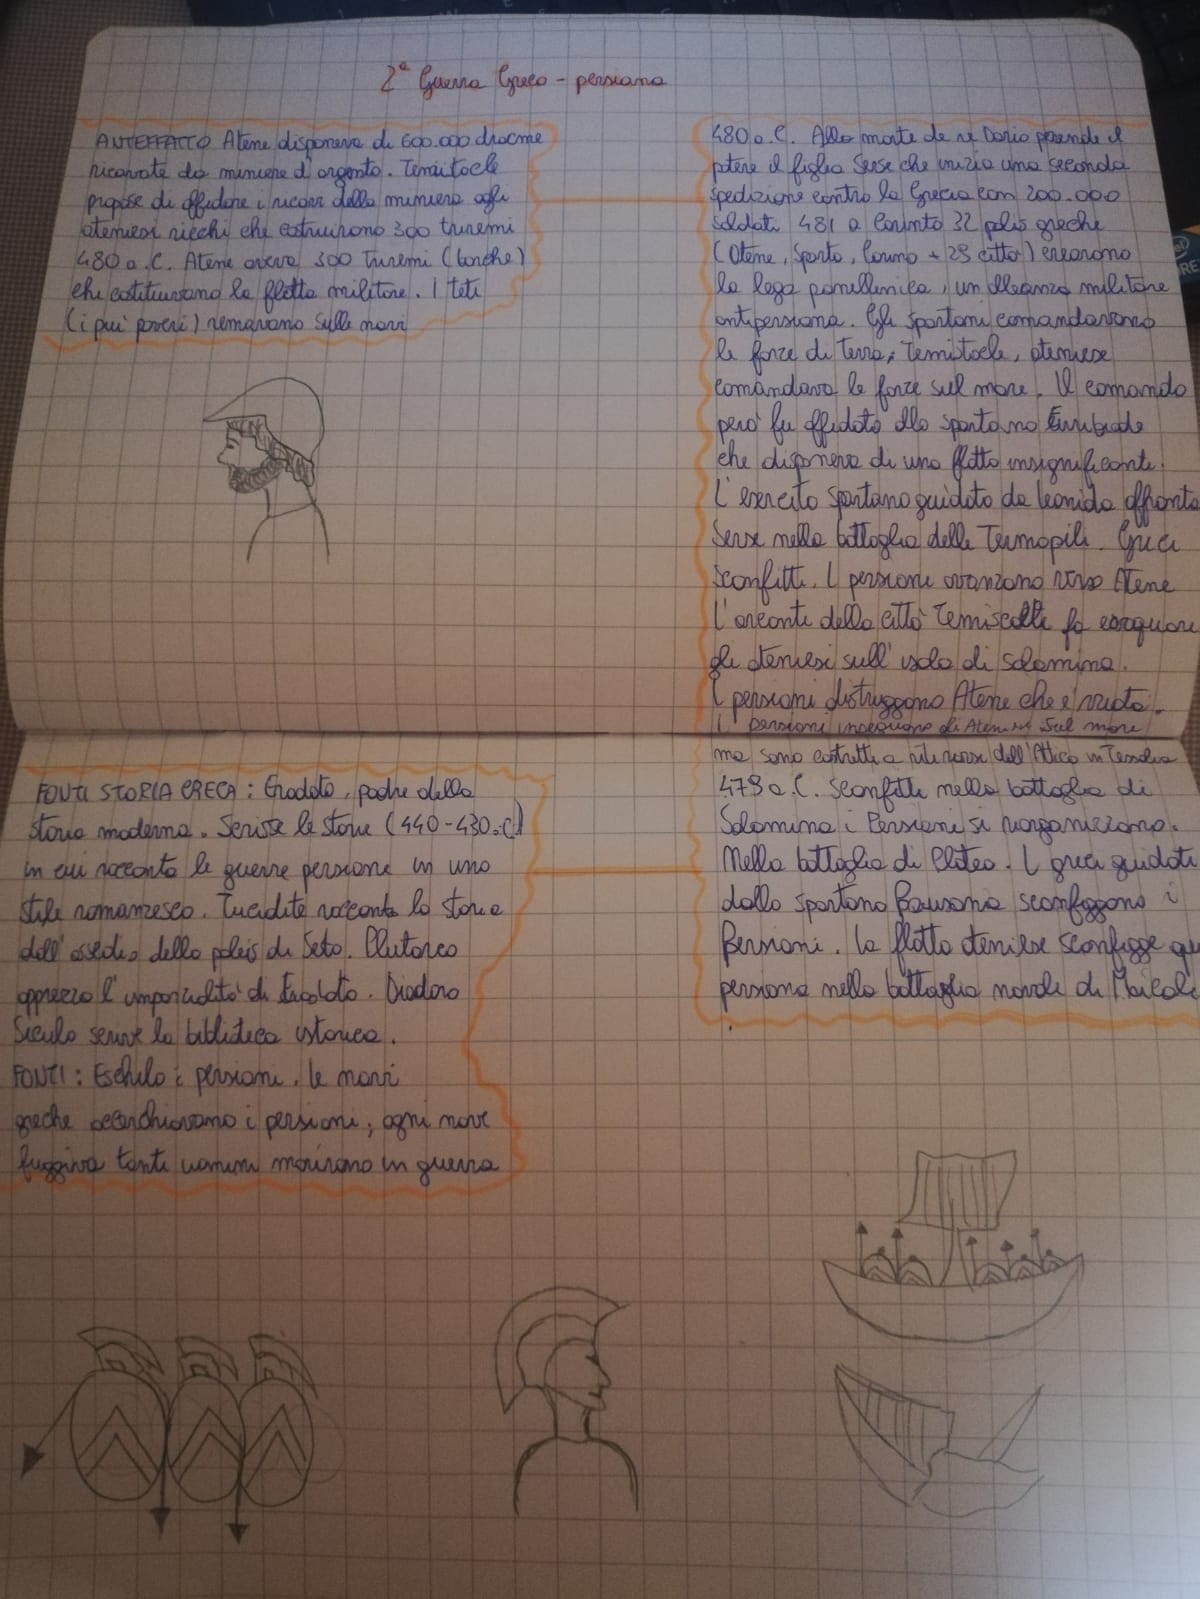 2ª Guerra Greco - persiana
ANTEFATTO Atene disponeva di 600.000 dracme
ricavate da miniere d'argento. Temistocle
propose di affidare i ricavi della miniera agli
ateniesi ricchi che costruirono 300 triremi
480 a.C. Atene aveva 300 Triremi (barche)
che costituivano la flotta militare. I teti
(i più poveri) remavano sulle navi
480 a.C. Alla morte de re Dario prende il
potere il figlio Serse che inizia una seconda
spedizione contro la Grecia con 200.000
soldati 481 a Corinto 32 polis greche
(Atene, Sparta, + 29 città) crearono
la lega panellenica, un alleanza militare
antipersiana. Gli Spartani comandavano
le forze di terra; Temistocle, ateniese
comandava le forze sul mare. Il comando
però fu affidato allo spartano Euribiade
che disponeva di una flotta insignificante.
L'esercito spartano guidato da Leonida affronta
Serse nella battaglia delle Termopili. Greci
sconfitti. I persiani avanzano verso Atene
L'arconte della città fa evacuare
gli ateniesi sull'isola di Salamina.
I persiani distruggono Atene che è vuota.
i persiani inseguono gli Ateniesi sul mare
ma sono costretti a ritirarsi dall'Attica in Tessalia
479 a.C. Sconfitti nella battaglia di
Salamina i Persiani si riorganizzano.
Nella battaglia di Platea. I greci guidati
dallo spartano Pausania sconfiggono i
Persiani. La flotta ateniese sconfigge
persiana nella battaglia navale di Micale
FONTI STORIA GRECA: Erodoto, padre della
storia moderna. Scrisse le storie (440-430a.C)
in cui racconta le guerre persiane in uno
stile romanzesco. Tucidite racconta la storia
dell'assedio della poleis di Sesto. Plutarco
apprezza l'imparzialità di Erodoto. Diodoro
Siculo scrive la biblioteca istorica.
FONTI: Eschilo i persiani. Le navi
greche accerchiavano i persiani; ogni nave
fuggiva tanti uomini morirono in guerra